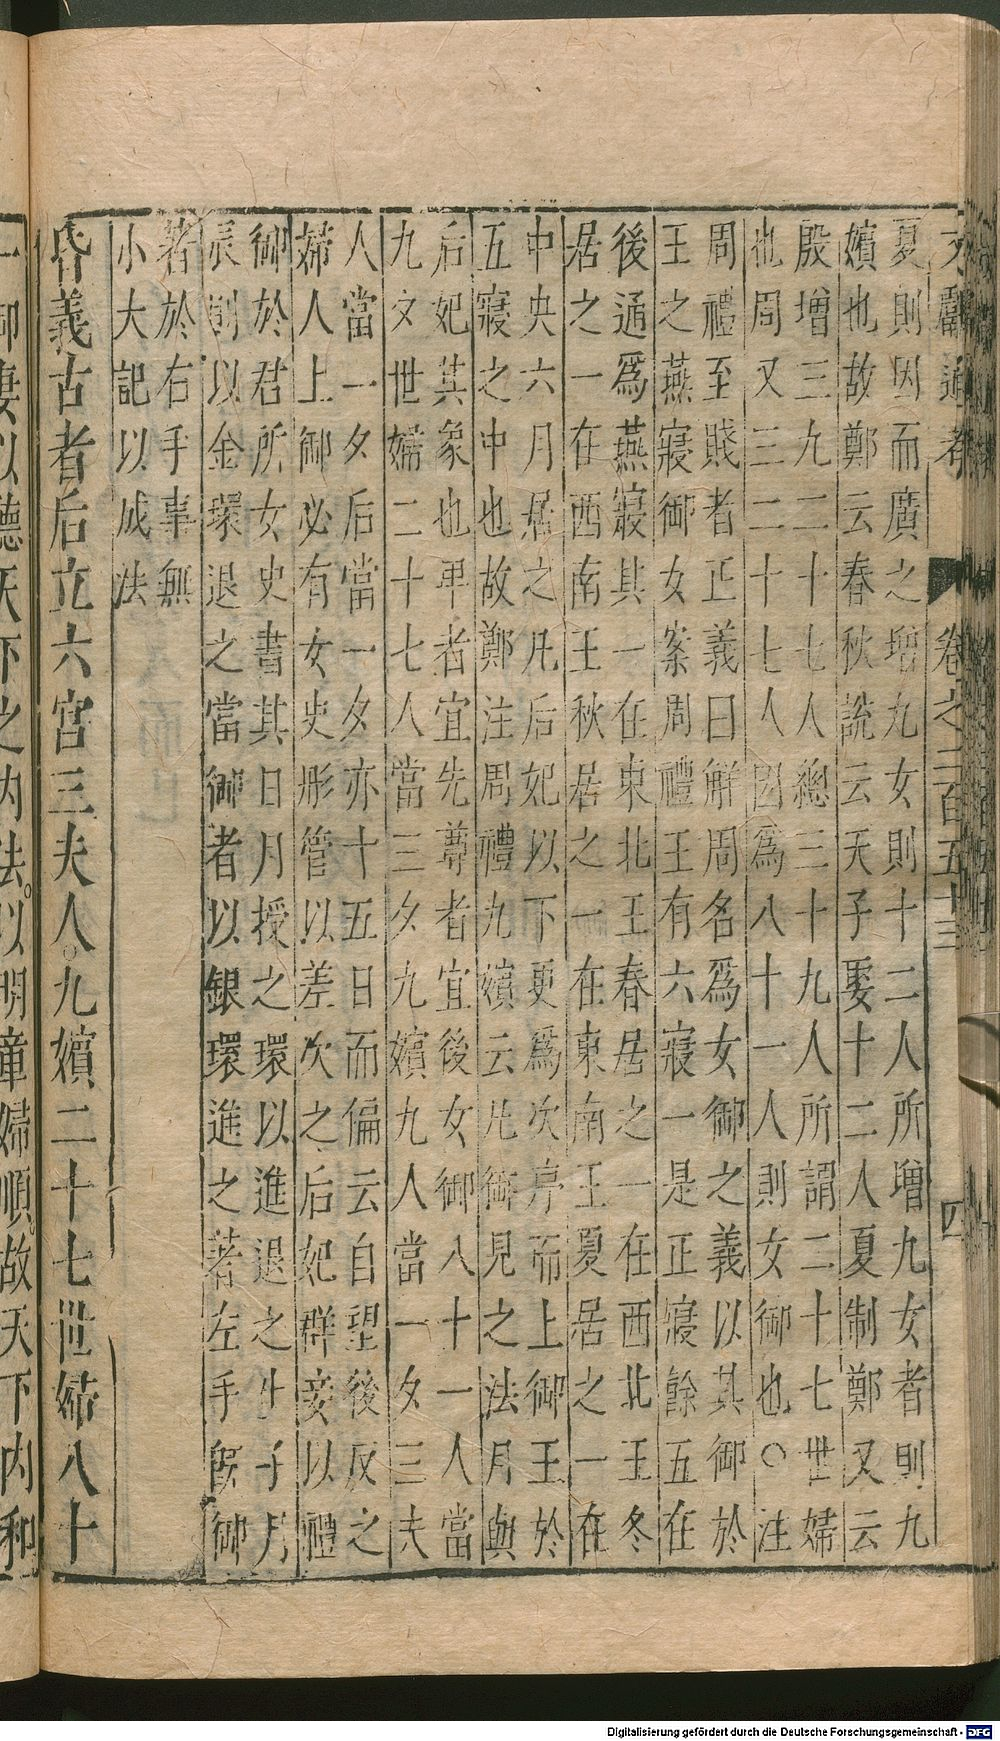 文獻通考 卷之二百五十三 四
夏則因而廣之增九女則十二人所增九女者則九
嬪也故鄭云春秋說云天子娶十二人夏制鄭又云
殷增三九二十七人總三十九人所謂二十七世婦
也周又三二十七人因爲八十一人則女御也○注
周禮至賤者正義曰解周名爲女御之義以其御於
王之燕寢御女案周禮王有六寢一是正寢餘五在
後通爲燕寢其一在東北王春居之一在西北王冬
居之一在西南王秋居之一在東南王夏居之一在
中央六月居之凡后妃以下更爲次序而上御王於
五寢之中也故鄭注周禮九嬪云凡御見之法月與
后妃其象也卑者宜先尊者宜後女御八十一人當
九夕世婦二十七人當三夕九嬪九人當一夕三夫
人當一夕后當一夕亦十五日而徧云自望後反之
婦人上御必有女史彤管以差次之后妃群妾以禮
御於君所女史書其日月授之環以進退之生子月
辰則以金環退之當御者以銀環進之著左手既御
著於右手事無
小大記以成法
昏義古者后立六宮三夫人。九嬪二十七世婦八十
一御妻以聽天下之內法。以明章婦順。故天下內和
Digitalisierung gefördert durch die Deutsche Forschungsgemeinschaft - DFG